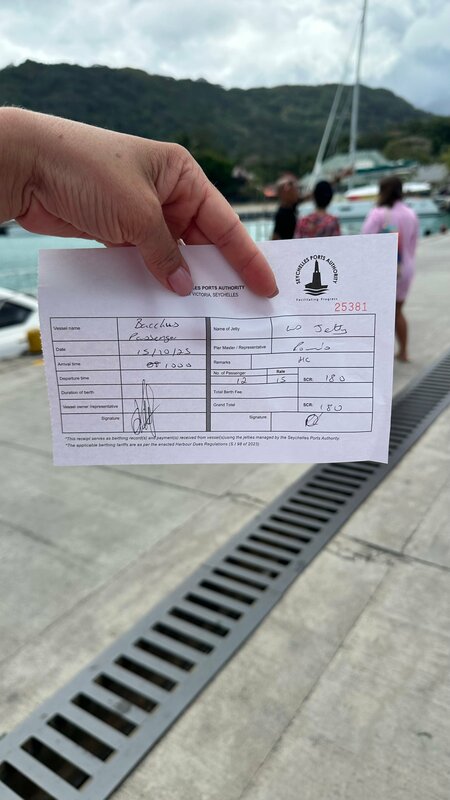 SEYCHELLES PORTS AUTHORITY
VICTORIA, SEYCHELLES
SEYCHELLES PORTS AUTHORITY
Facilitating Progress
25381
Vessel name Bacchus Passenger
Name of Jetty LD Jetty
Date 15/10/25
Pier Master / Representative
Arrival time 1000
Remarks HC
Departure time
No. of Passenger 12 Rate 15 SCR: 180
Duration of berth
Total Berth Fee
Vessel owner /representative
Grand Total SCR: 180
Signature
Signature
*This receipt serves as berthing record(s) and payment(s) received from vessel(s)using the jetties managed by the Seychelles Ports Authority.
*The applicable berthing tariffs are as per the enacted Harbour Dues Regulations (S.I 98 of 2023)